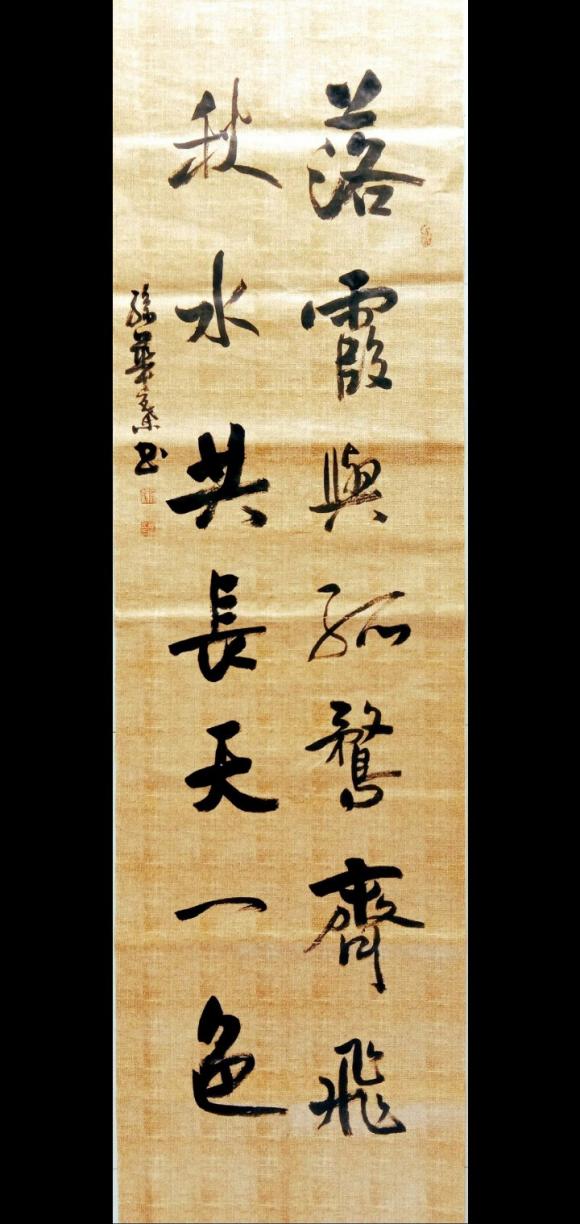 落霞與孤鶩齊飛
秋水共長天一色
孫華書